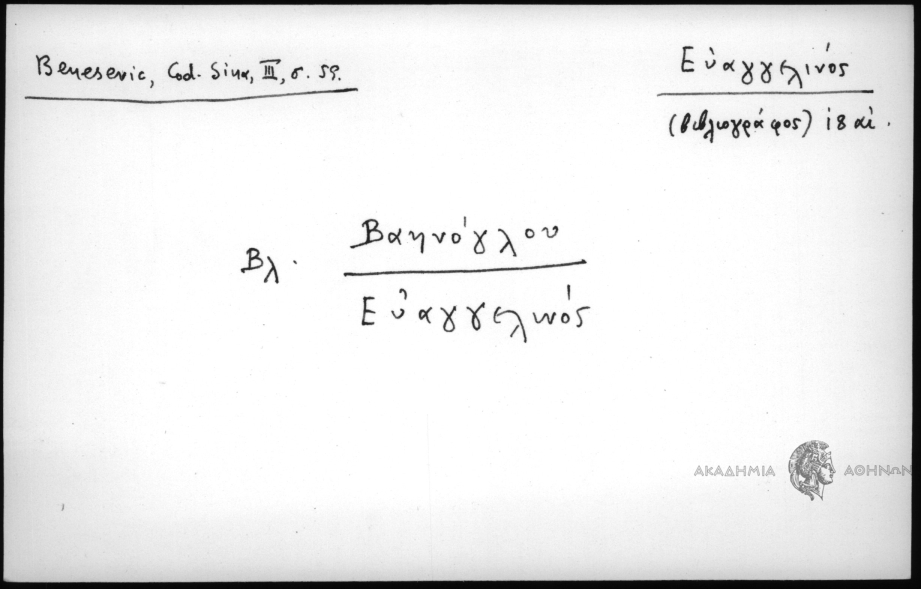 Benesevic, Cod. Sina, III, σ. 59.
Εὐαγγελινός
(βιβλιογράφος) 18 αἰ.
Βλ. Βαηνόγλου
Εὐαγγελινός
ΑΚΑΔΗΜΙΑ ΑΘΗΝΩΝ